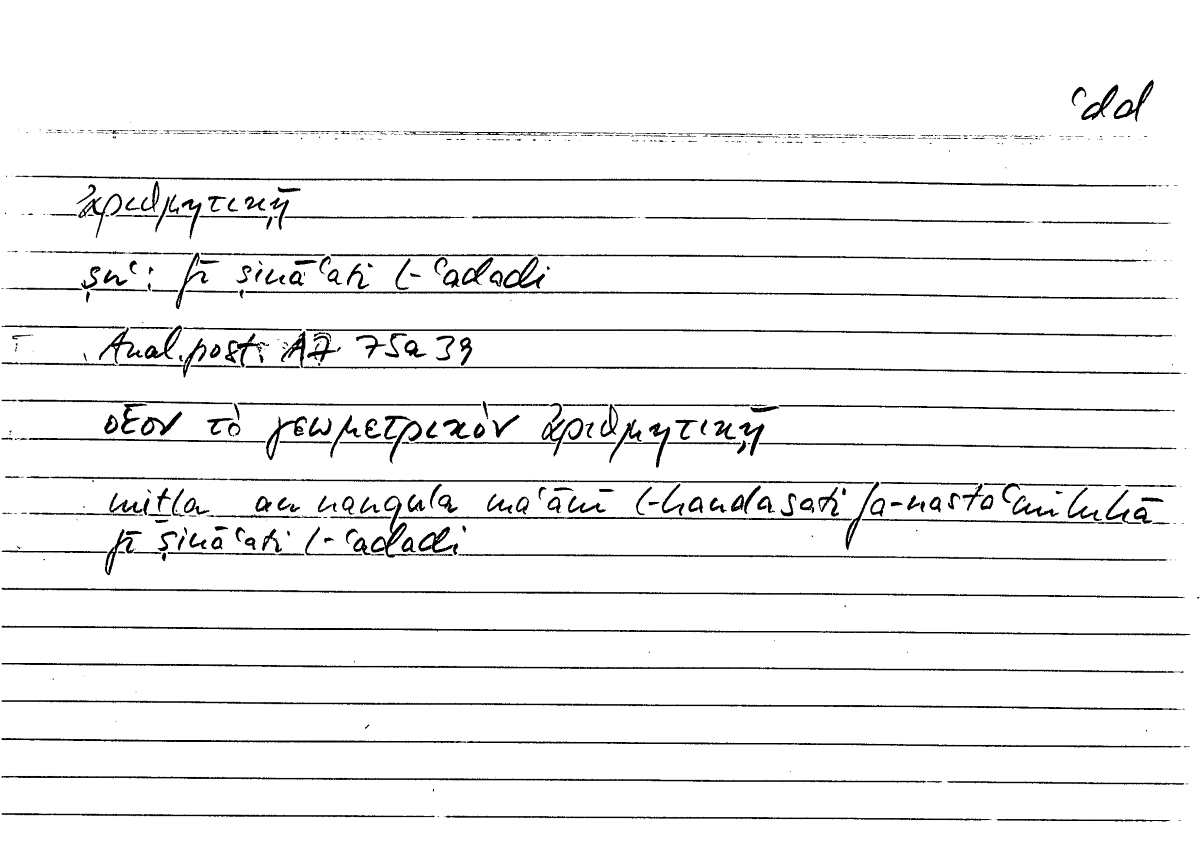 ʿdd
ἀριθμητικῇ
ṣnʿ: fī ṣināʿati l-ʿadadi
Anal. post. A7 75a39
οἷον τὸ γεωμετρικὸν ἀριθμητικῇ
mitla an nanqula maʿānī l-handasati fa-nastaʿmiluhā
fī ṣināʿati l-ʿadadi